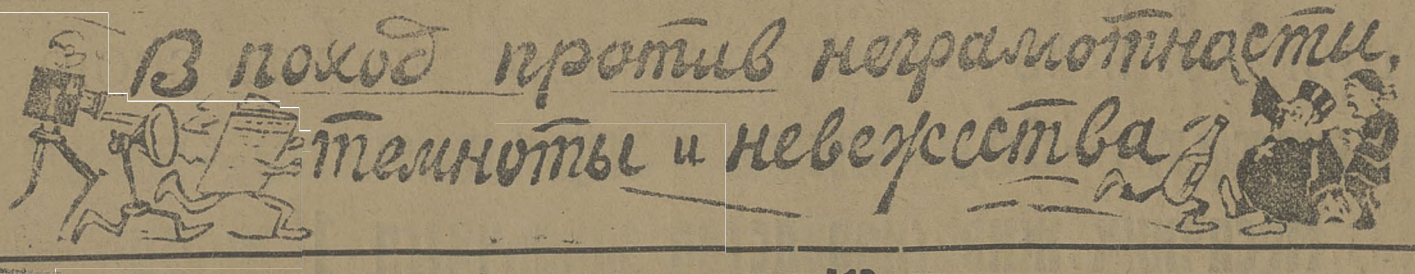 В поход против неграмотности,
темноты и невежества